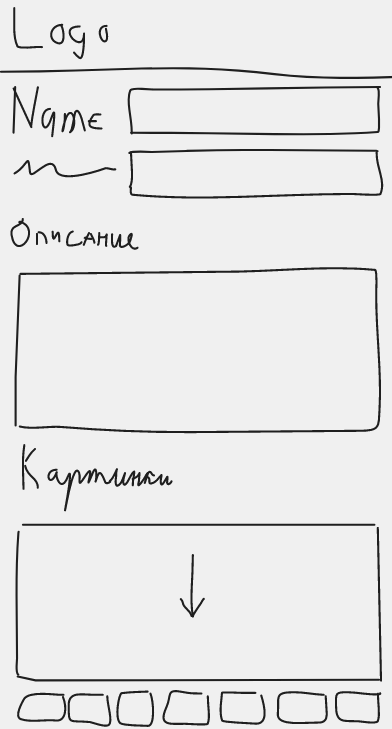 Logo
Name
Описание
Картинки